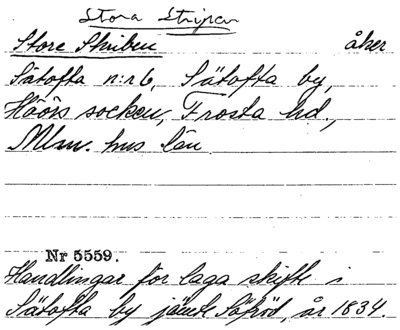 Stora Stripen
Store Skriben åker
Sätofta n:r 6, Sätofta by,
Höörs socken, Frosta hd.,
Mlm. hus län
Nr 5559.
Handlingar för laga skifte i
Sätofta by jämte Säfröd, år 1834.